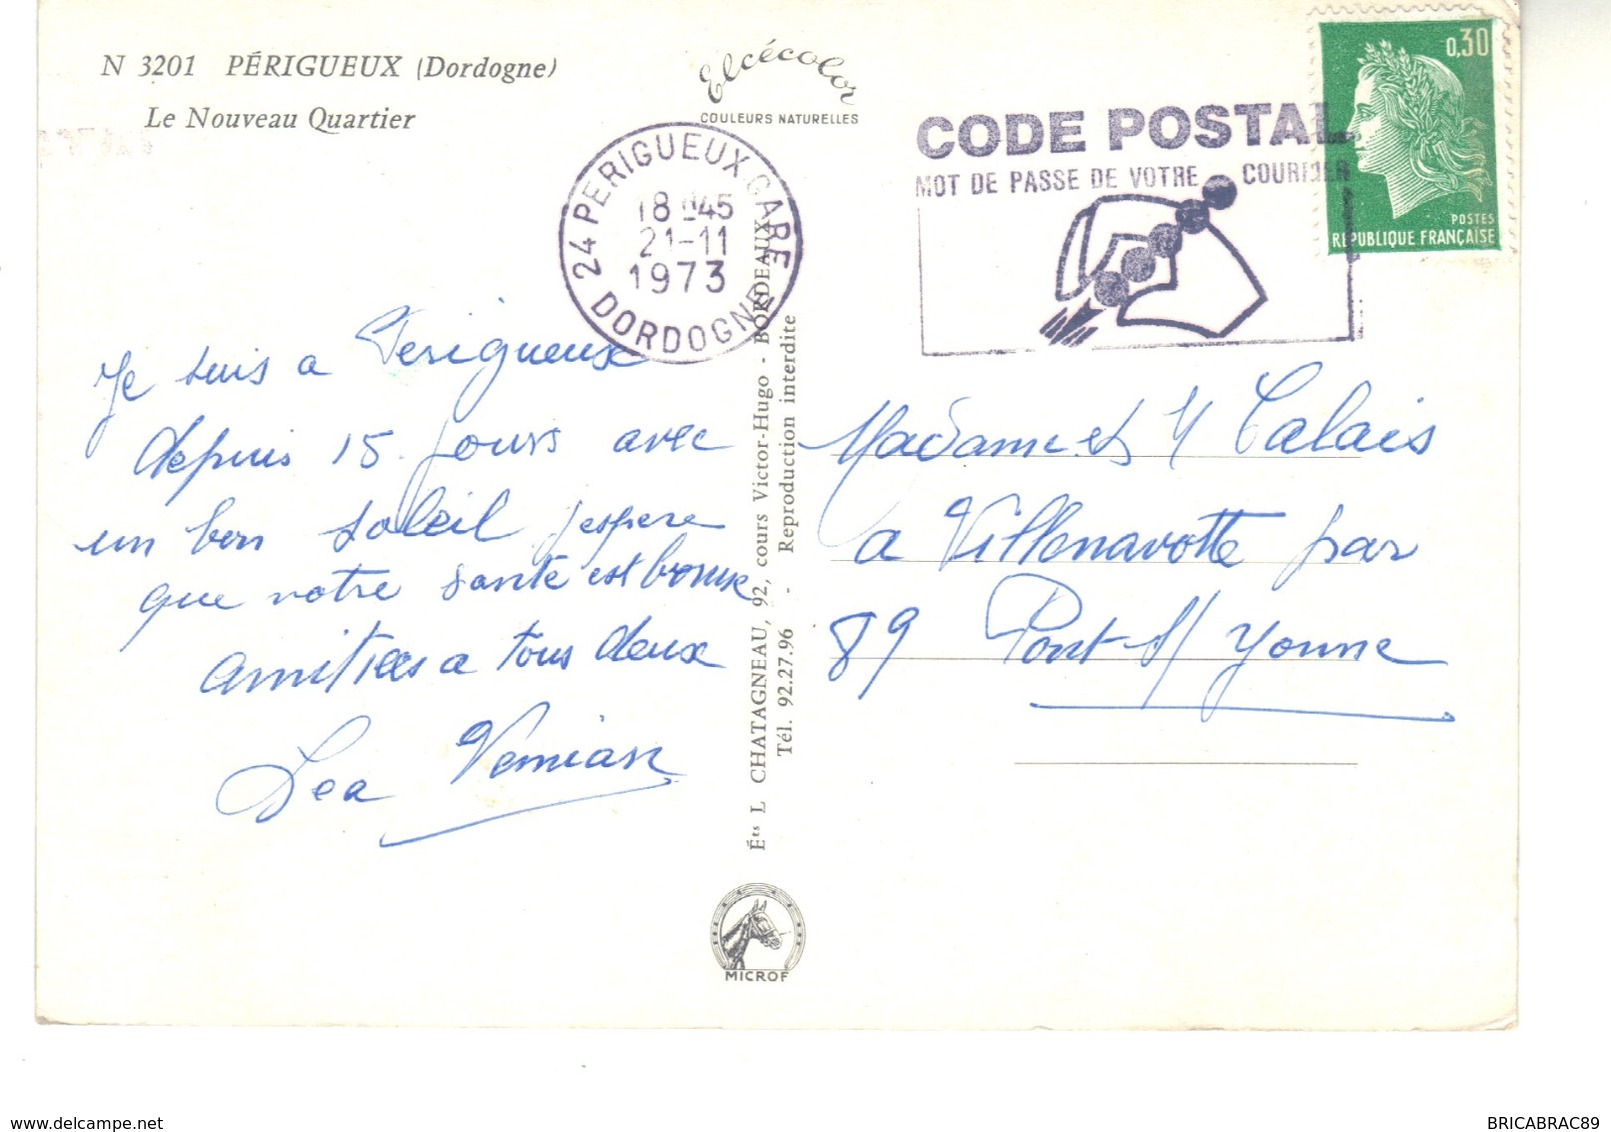 N 3201 PÉRIGUEUX (Dordogne)
Le Nouveau Quartier
Elcécolor
COULEURS NATURELLES
24 PERIGUEUX GARE
18H45
21-11
1973
DORDOGNE
CODE POSTAL
MOT DE PASSE DE VOTRE COURRIER
0,30
POSTES
RÉPUBLIQUE FRANÇAISE
Je suis a Perigueux
depuis 15 jours avec
un bon soleil j'espere
que votre santé est bonne
amitiées a tous deux
Lea
Madame et M Calais
a Villenavotte par
89 Pont s/ Yonne
Éts L CHATAGNEAU, 92, cours Victor-Hugo - BORDEAUX
Tél. 92.27.96 - Reproduction interdite
MICROF
delcampe.net
BRICABRAC89